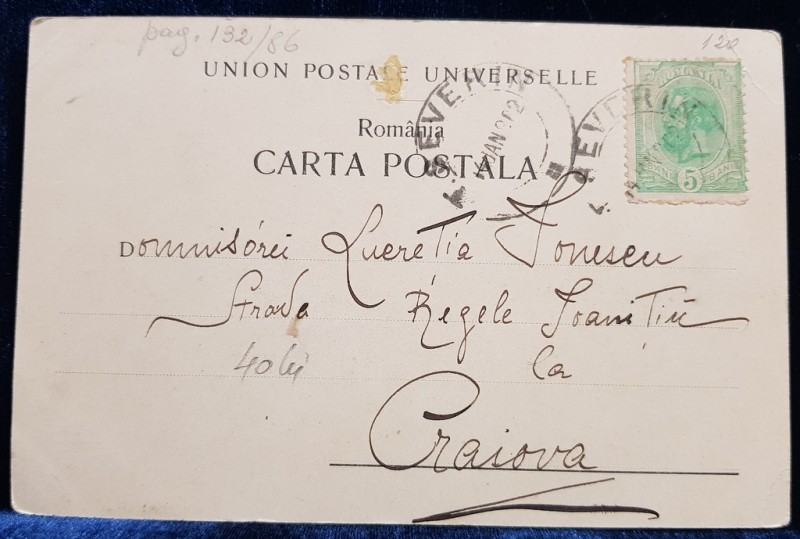 pag. 132/86
120
UNION POSTALE UNIVERSELLE
România
CARTA POSTALA
T. SEVERIN
JAN 902
SEVERIN
ROMANIA
5
BANI
Domnisórei Lucretia Ionescu
Strada Regele Ioanitiu
40 lei
la
Craiova